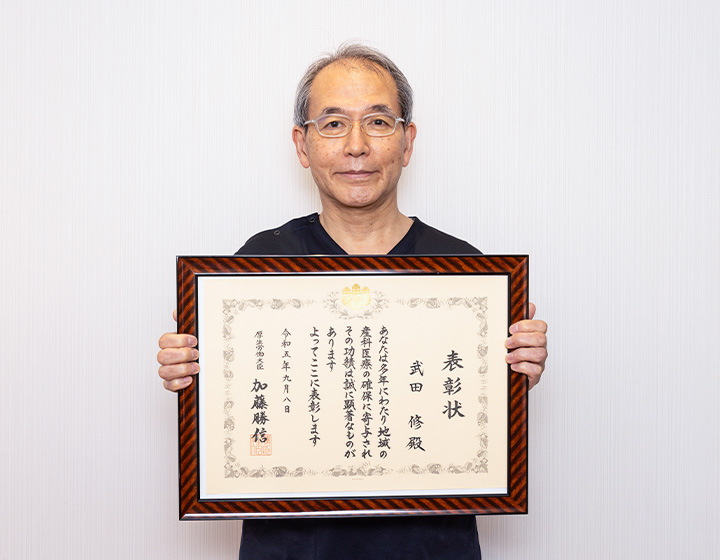 表彰状
武田 修殿
あなたは多年にわたり地域の
産科医療の確保に寄与され
その功績は誠に顕著なものが
あります
よってここに表彰します
令和五年九月八日
厚生労働大臣 加藤勝信